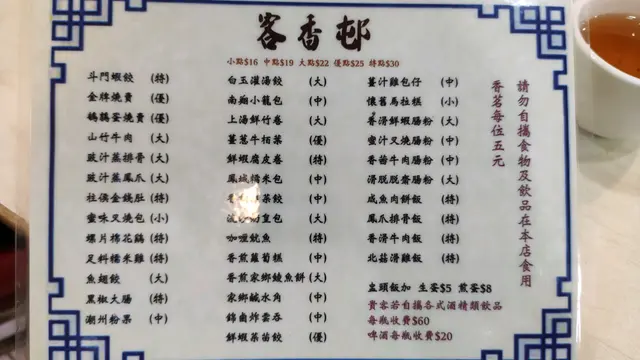 客香邨
小點$16 中點$19 大點$22 優點$25 特點$30
斗門蝦餃 (特)
金牌燒賣 (優)
鵪鶉蛋燒賣 (優)
山竹牛肉 (大)
豉汁蒸排骨 (大)
豉汁蒸鳳爪 (大)
柱侯金錢肚 (特)
蜜味叉燒包 (小)
螺片棉花鷄 (特)
足料糯米雞 (特)
魚翅餃 (大)
黑椒大腸 (特)
潮州粉果 (中)
白玉灌湯餃 (大)
南翔小籠包 (中)
上湯鮮竹卷 (大)
薑葱牛栢葉 (優)
鮮蝦腐皮卷 (特)
鳳城糯米包 (中)
菜餃 (中)
皇包 (大)
咖喱魷魚 (特)
香煎蘿蔔糕 (中)
香煎家鄉鯪魚餅 (大)
家鄉鹹水角 (中)
錦鹵炸雲吞 (中)
鮮蝦菜苗餃 (優)
薑汁雞包仔 (中)
懷舊馬拉糕 (小)
香滑鮮蝦腸粉 (大)
蜜汁叉燒腸粉 (中)
香茜牛肉腸粉 (中)
滑脱脱齋腸粉 (大)
咸魚肉餅飯 (特)
鳳爪排骨飯 (特)
香滑牛肉飯 (特)
北菇滑雞飯 (特)
盅頭飯加 生蛋$5 煎蛋$8
貴客若自攜各式酒精類飲品
每瓶收費$60
啤酒每瓶收費$20
請勿自攜食物及飲品在本店食用
香茗每位五元